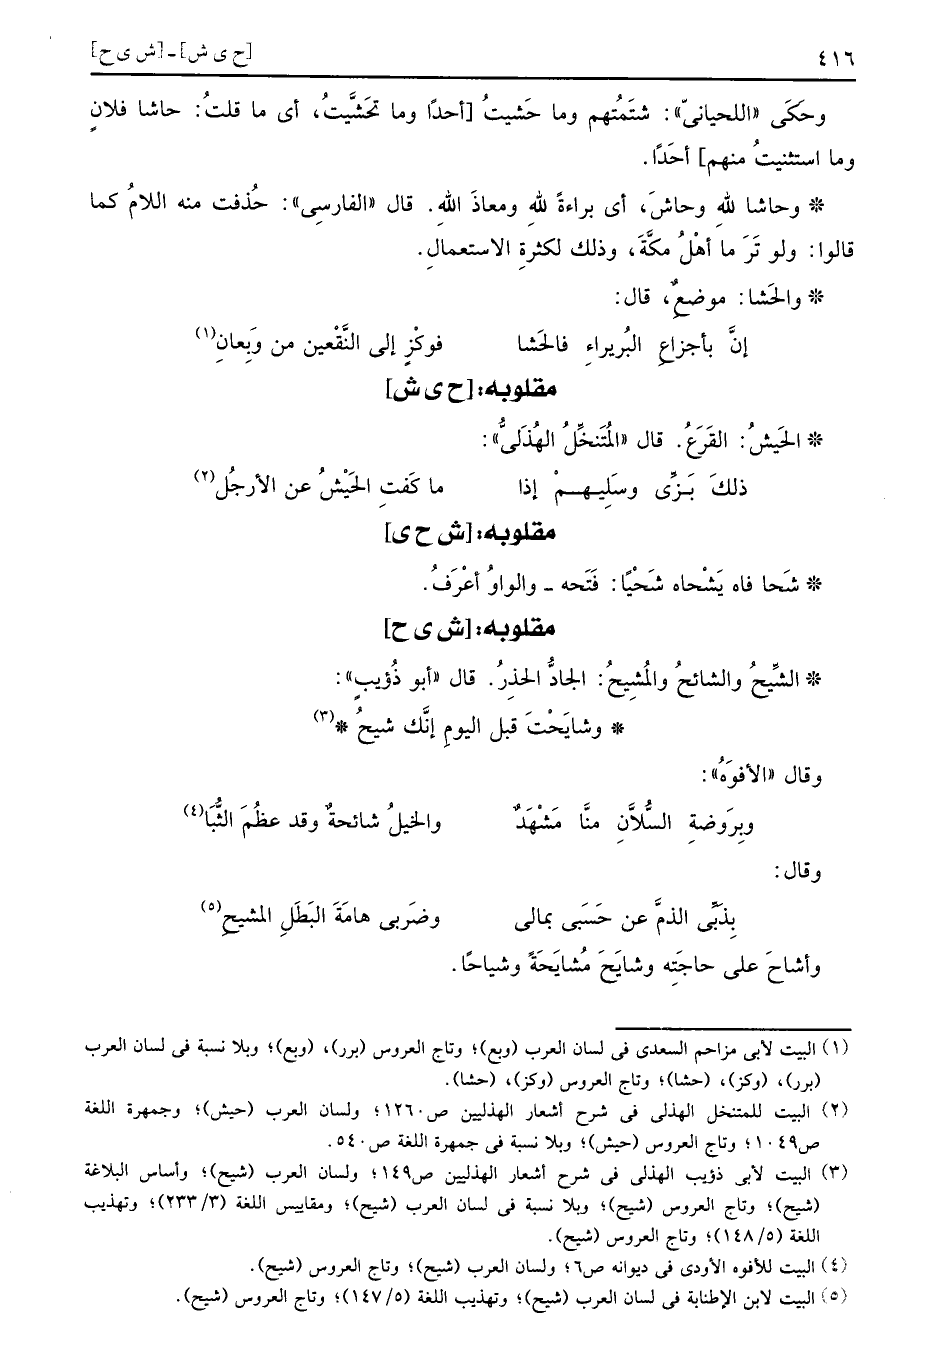 ٤١٦ [ح ى ش] - [ش ى ح]
وحكَى «اللحيانىّ»: شتَمتُهم وما حَشيتُ [أحدًا وما تحَشَّيتُ، أى ما قلتُ: حاشا فلانٍ
وما استثنيتُ منهم] أحَدًا.
* وحاشا للهِ وحاشَ، أى براءةً للهِ ومعاذَ اللهِ. قال «الفارسِى»: حُذفت منه اللامُ كما
قالوا: ولو تَرَ ما أهْلُ مكَّةَ، وذلك لكثرةِ الاستعمالِ.
* والحَشا: موضعٌ، قال:
إنَّ بأجزاعِ البُريراءِ فالحَشا فوكْزٍ إلى النَّقْعين من وَبِعانِ(١)
مقلوبه: [ح ى ش]
* الحَيشُ: الفَزَعُ. قال «المُتَنخِّلُ الهُذَلىُّ»:
ذلكَ بَزِّى وسلَيهِمْ إذا ما كَفتِ الحَيْشُ عن الأرجُلِ(٢)
مقلوبه: [ش ح ى]
* شَحا فاه يَشْحاه شَحْيًا: فَتَحه - والواوُ أعْرَفُ.
مقلوبه: [ش ى ح]
* الشِّيحُ والشائحُ والمُشِيحُ: الجادُّ الحَذِرُ. قال «أبو ذُؤيبٍ»:
* وشايَحْتَ قبل اليومِ إنَّك شيحُ *(٣)
وقال «الأفوَهُ»:
وبِرَوضةِ السُّلاَّنِ منَّا مَشْهَدٌ والخيلُ شائحةٌ وقد عظُمَ الثُّبَا(٤)
وقال:
بِذَبِّى الذمَّ عن حَسَبى بمالى وضَربى هامَةَ البَطَلِ المشيحِ(٥)
وأشاحَ على حاجَتِه وشايَحَ مُشايَحَةً وشياحًا.
(١) البيت لأبى مزاحم السعدى فى لسان العرب (وبع)؛ وتاج العروس (برر)، (وبع)؛ وبلا نسبة فى لسان العرب
(برر)، (وكز)، (حشا)؛ وتاج العروس (وكز)، (حشا).
(٢) البيت للمتنخل الهذلى فى شرح أشعار الهذليين ص١٢٦٠؛ ولسان العرب (حيش)؛ وجمهرة اللغة
ص١٠٤٩؛ وتاج العروس (حيش)؛ وبلا نسبة فى جمهرة اللغة ص٥٤٠.
(٣) البيت لأبى ذؤيب الهذلى فى شرح أشعار الهذليين ص١٤٩؛ ولسان العرب (شيح)؛ وأساس البلاغة
(شيح)؛ وتاج العروس (شيح)؛ وبلا نسبة فى لسان العرب (شيح)؛ ومقاييس اللغة (٢٣٣/٣)؛ وتهذيب
اللغة (١٤٨/٥)؛ وتاج العروس (شيح).
(٤) البيت للأفوه الأودى فى ديوانه ص٦؛ ولسان العرب (شيح)؛ وتاج العروس (شيح).
(٥) البيت لابن الإطنابة فى لسان العرب (شيح)؛ وتهذيب اللغة (١٤٧/٥)؛ وتاج العروس (شيح).